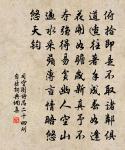 俯拾即是不取諸鄰俱
道適往著手成春如逢
花開如瞻歲新真與不
奪強得易貧幽人空山
過雨采蘋薄言情悟悠
悠天鈞
司空圖詩品二十四則
自然